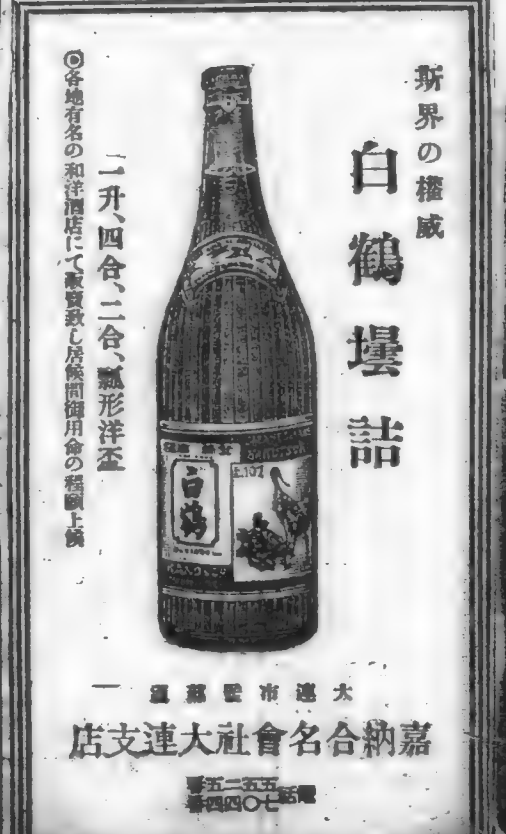 斯界の權威
白鶴壜詰
一升、四合、二合、瓢形洋盃
◎各地有名の和洋酒店にて販賣致し居候間御用命の程願上候
白鶴
大連市監部通
嘉納合名會社大連支店
電話